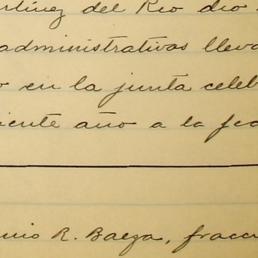 rtínez del Rio dio
administrativas lleva
o en la junta celeb
iente año a la fec
nio R. Baeza, fracc